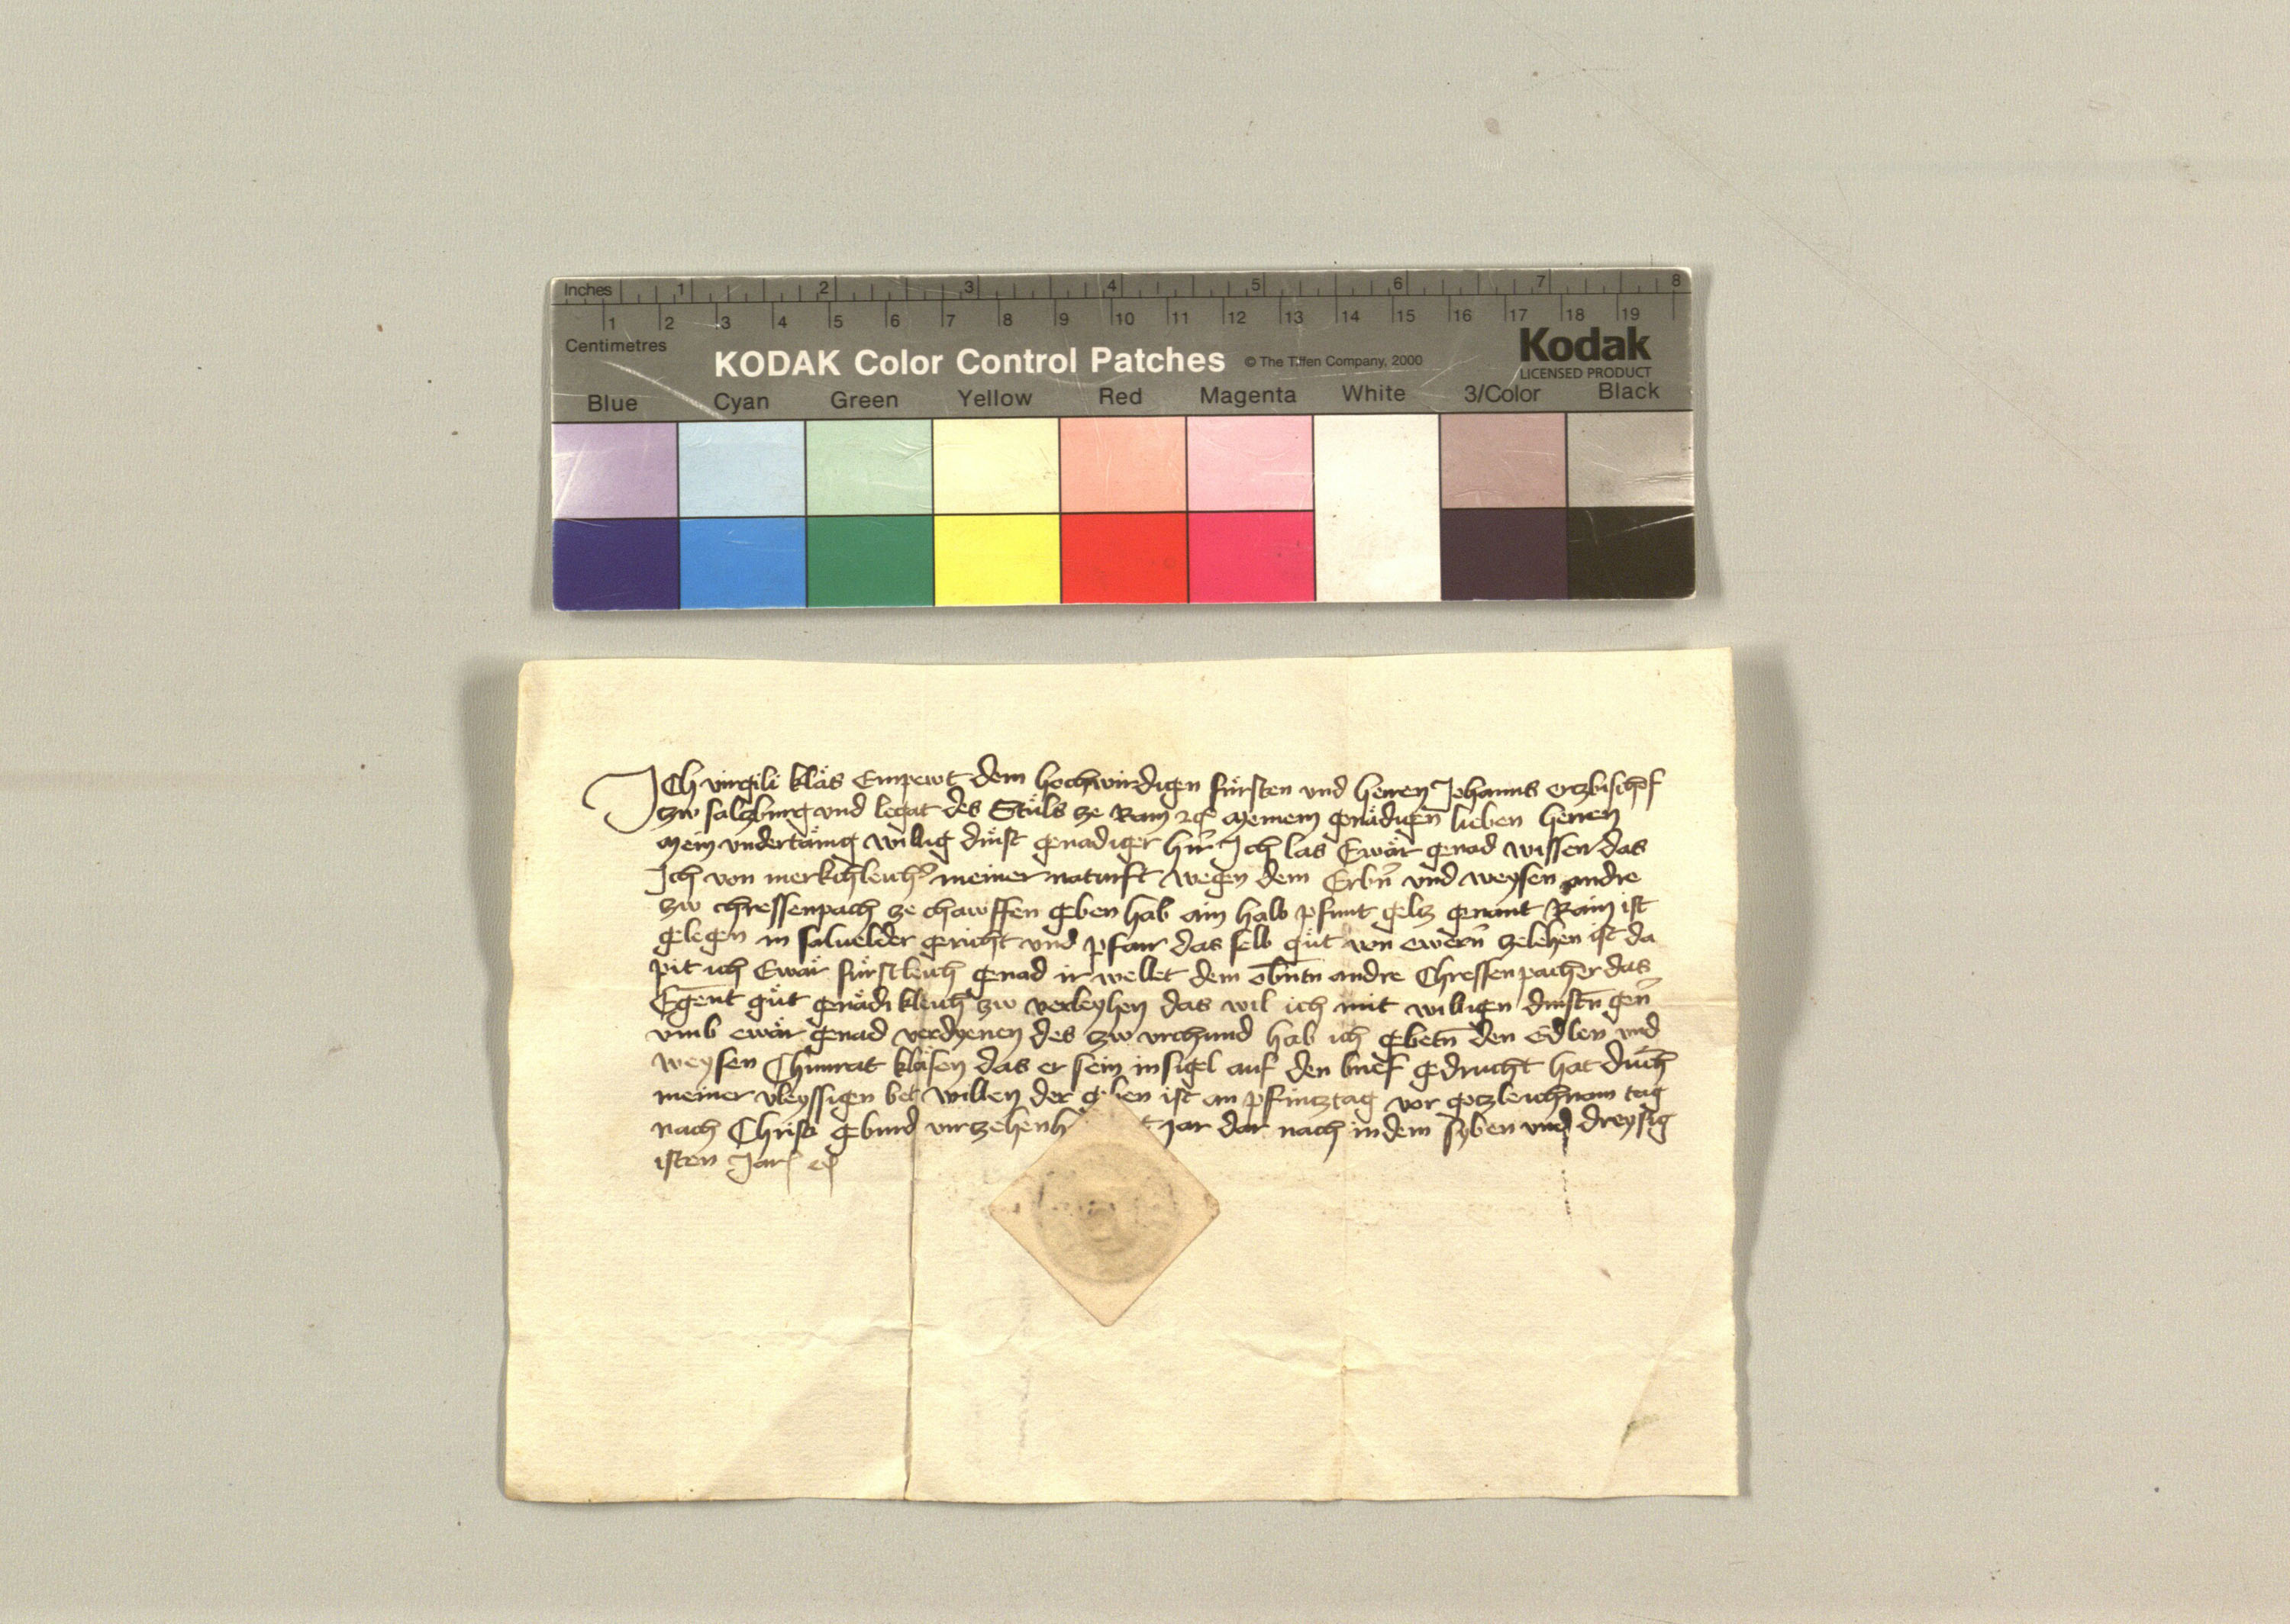 Inches 1 2 3 4 5 6 7 8
1 2 3 4 5 6 7 8 9 10 11 12 13 14 15 16 17 18 19
Centimetres
KODAK Color Control Patches © The Tiffen Company, 2000 Kodak
LICENSED PRODUCT
Blue Cyan Green Yellow Red Magenta White 3/Color Black
ICh virgili kläs Empewt dem hochwirdigen fürsten vnd herren Johanns ertzbischof
zw salzburg vnd legat des Stůls ze Rom meinem genädigen lieben herren
mein vndertänig willig dinst genadiger her Ich las Ewär genad wissen das
Ich von merkchleicher meiner naturft wegen dem Erbn̄ vnd weysen andre
zw chressenpach ze chawffen geben hab ain halb pfunt geltz genant Rain ist
gelegen in salvelder gericht vnd pfarr das selb gůt von ewern̄ zelehen ist da
pit ich Ewär fürstleich genad ir wellet dem obn̄tn andre Chressenpacher das
Egen̄t gůt genädikleich zw verleyhen das wil ich mit willigen dinstn̄ gern̄
vmb ewär genad verdyenen des zw vrchund hab ich gebetn̄ den Edlen vnd
weysen Chunrat kläsen das er sein insigel auf den brief gedrucht hat durch
meiner vleyssigen bet willen der geben ist an pfintztag vor gotzleichnam tag
nach Christ geburd virzehenh t Jar dar nach in dem syben vnd dreysig
isten Jar